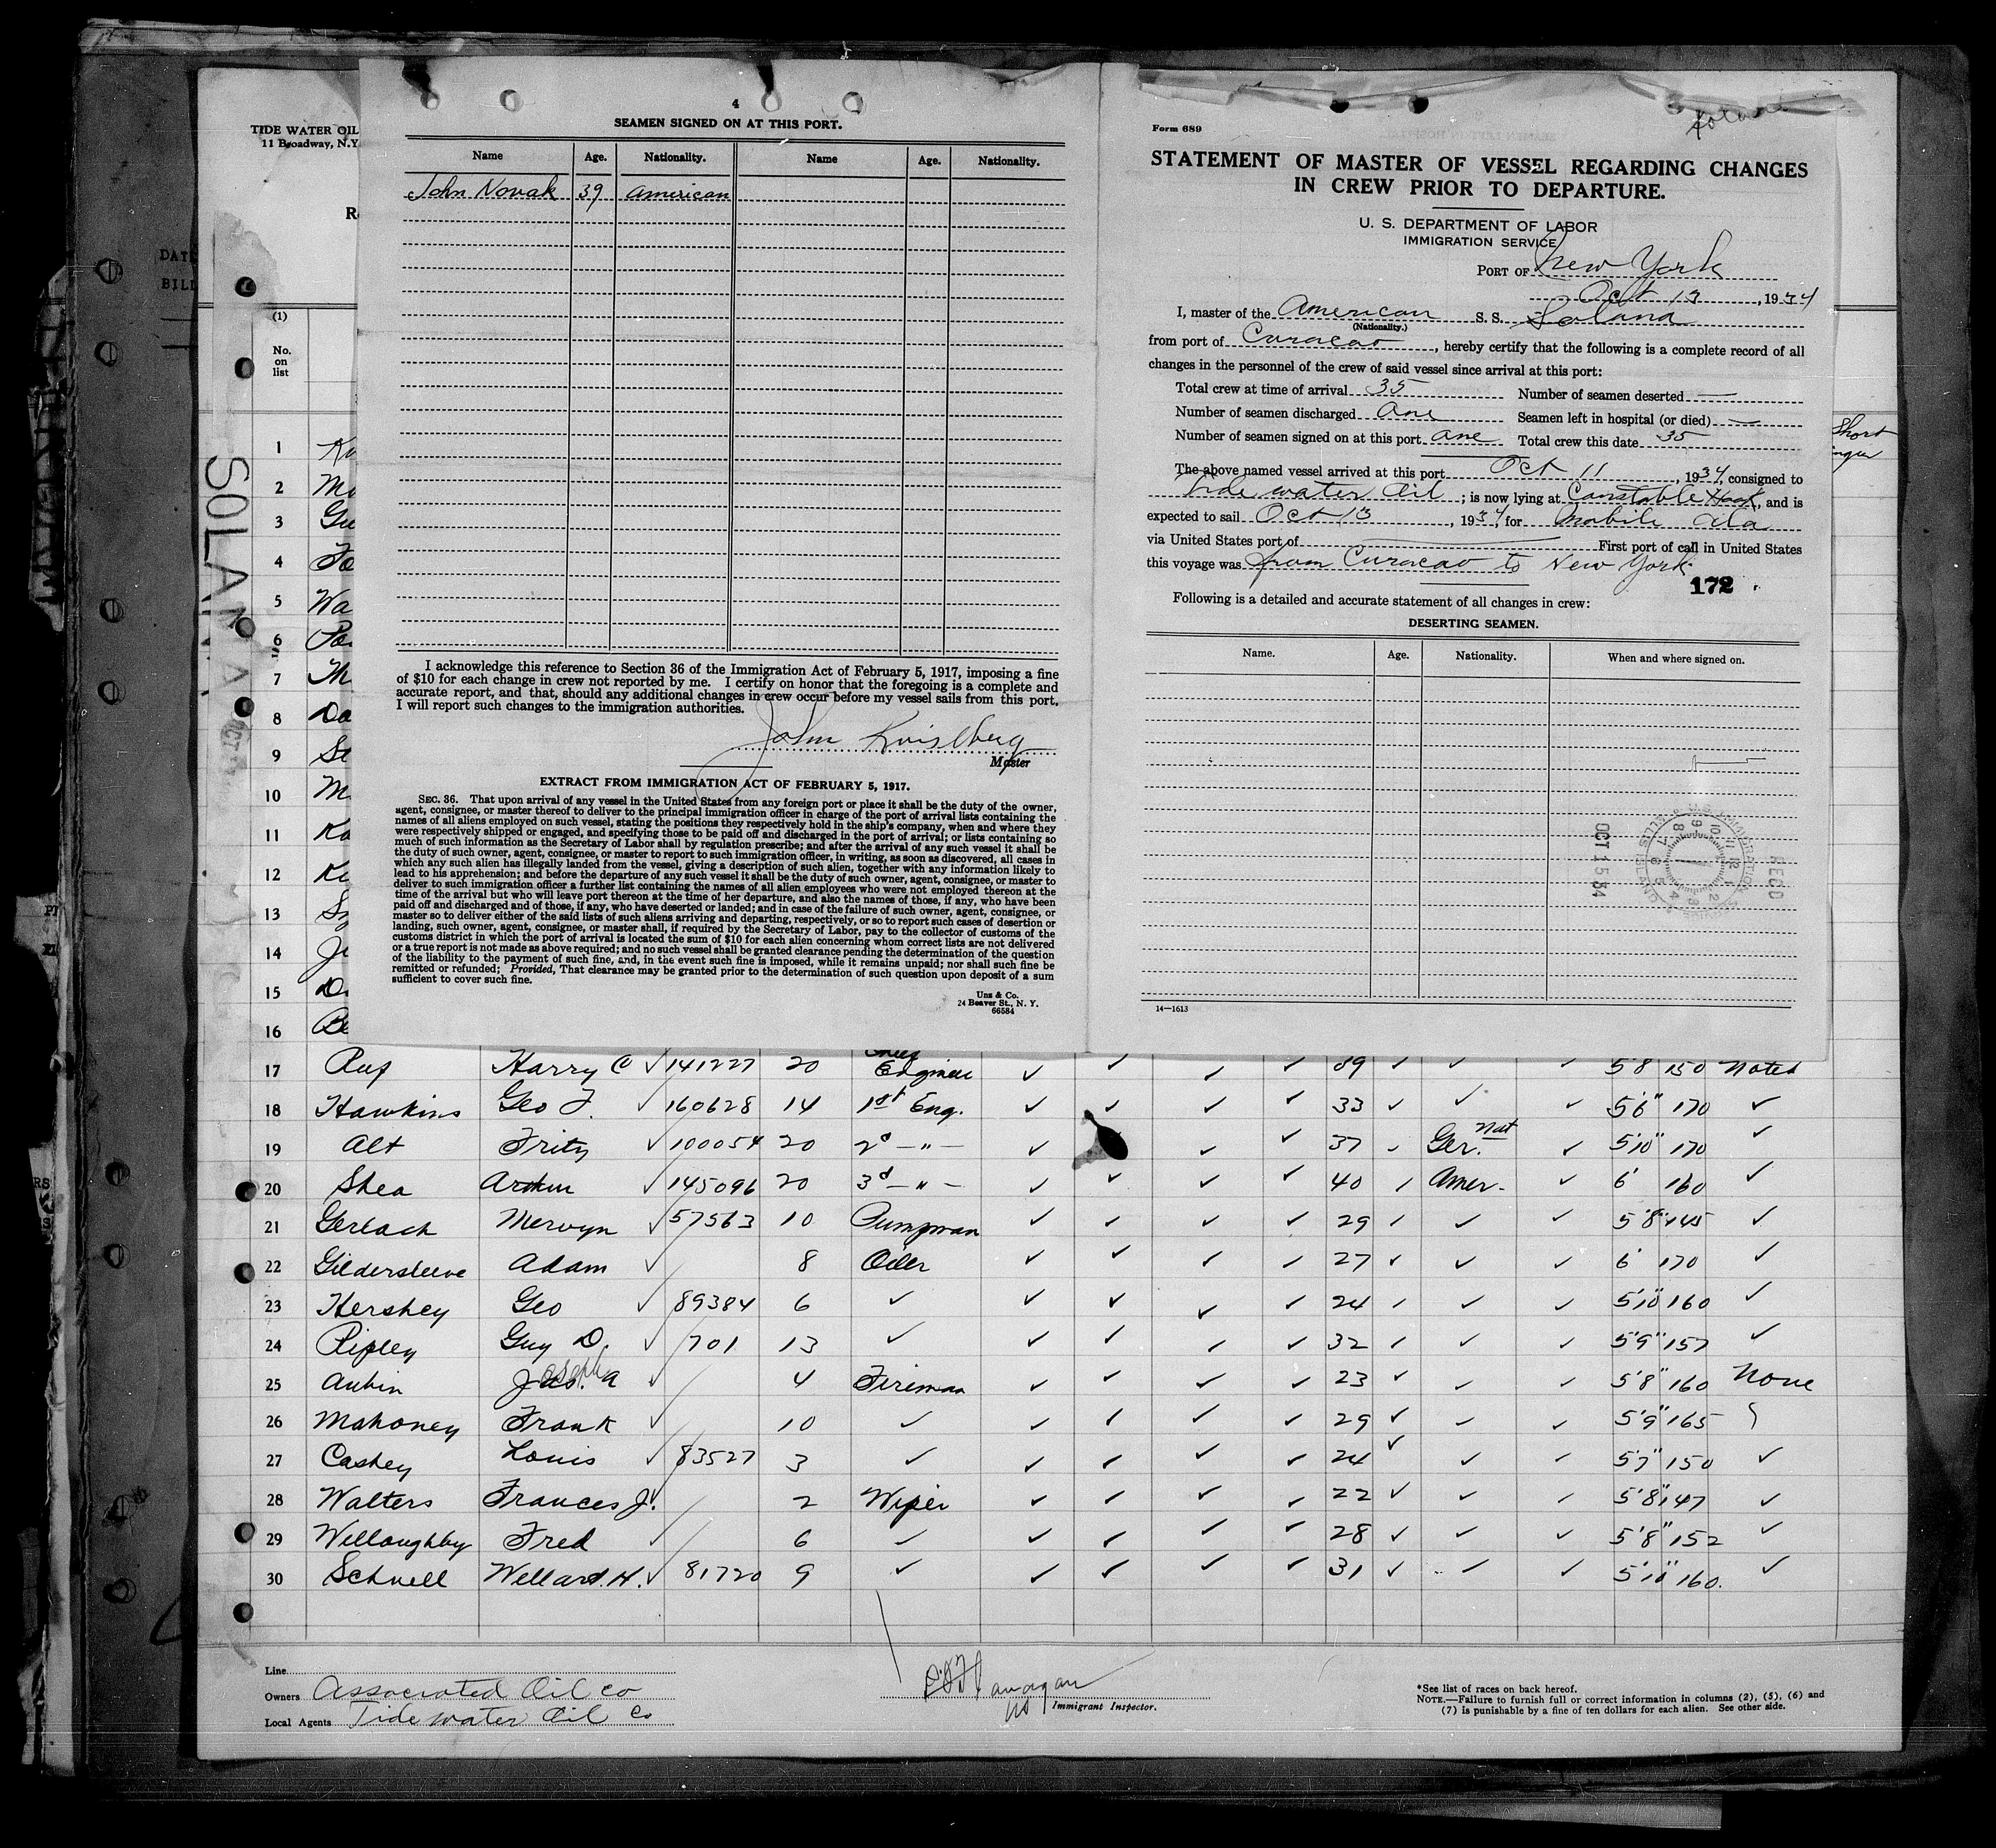 TIDE WATER OIL
11 Broadway, N.Y.
DATE
BILL
(1)
No.
on
list
SOLANA
4
SEAMEN SIGNED ON AT THIS PORT.
Name Age. Nationality. Name Age. Nationality.
John Novak 39 American
I acknowledge this reference to Section 36 of the Immigration Act of February 5, 1917, imposing a fine
of $10 for each change in crew not reported by me. I certify on honor that the foregoing is a complete and
accurate report, and that, should any additional changes in crew occur before my vessel sails from this port,
I will report such changes to the immigration authorities.
John
Master
EXTRACT FROM IMMIGRATION ACT OF FEBRUARY 5, 1917.
SEC. 36. That upon arrival of any vessel in the United States from any foreign port or place it shall be the duty of the owner,
agent, consignee, or master thereof to deliver to the principal immigration officer in charge of the port of arrival lists containing the
names of all aliens employed on such vessel, stating the positions they respectively hold in the ship's company, when and where they
were respectively shipped or engaged, and specifying those to be paid off and discharged in the port of arrival; or lists containing so
much of such information as the Secretary of Labor shall by regulation prescribe; and after the arrival of any such vessel it shall be
the duty of such owner, agent, consignee, or master to report to such immigration officer, in writing, as soon as discovered, all cases in
which any such alien has illegally landed from the vessel, giving a description of such alien, together with any information likely to
lead to his apprehension; and before the departure of any such vessel it shall be the duty of such owner, agent, consignee, or master to
deliver to such immigration officer a further list containing the names of all alien employees who were not employed thereon at the
time of the arrival but who will leave port thereon at the time of her departure, and also the names of those, if any, who have been
paid off and discharged and of those, if any, who have deserted or landed; and in case of the failure of such owner, agent, consignee, or
master so to deliver either of the said lists of such aliens arriving and departing, respectively, or so to report such cases of desertion or
landing, such owner, agent, consignee, or master shall, if required by the Secretary of Labor, pay to the collector of customs of the
customs district in which the port of arrival is located the sum of $10 for each alien concerning whom correct lists are not delivered
or a true report is not made as above required; and no such vessel shall be granted clearance pending the determination of the question
of the liability to the payment of such fine, and, in the event such fine is imposed, while it remains unpaid; nor shall such fine be
remitted or refunded; Provided, That clearance may be granted prior to the determination of such question upon deposit of a sum
sufficient to cover such fine.
Unz & Co.
24 Beaver St., N. Y.
66584
Solana
Form 689
STATEMENT OF MASTER OF VESSEL REGARDING CHANGES
IN CREW PRIOR TO DEPARTURE.
U. S. DEPARTMENT OF LABOR
IMMIGRATION SERVICE
PORT OF New York
Oct 13, 1934
I, master of the American S. S. Solana
(Nationality.)
from port of Curacao, hereby certify that the following is a complete record of all
changes in the personnel of the crew of said vessel since arrival at this port:
Total crew at time of arrival 35 Number of seamen deserted —
Number of seamen discharged one Seamen left in hospital (or died) —
Number of seamen signed on at this port one Total crew this date 35
The above named vessel arrived at this port Oct 11, 1934, consigned to
Tide water Oil; is now lying at Constable Hook, and is
expected to sail Oct 13, 1934, for Mobile Ala
via United States port of First port of call in United States
this voyage was from Curacao to New York
172
Following is a detailed and accurate statement of all changes in crew:
DESERTING SEAMEN.
Name. Age. Nationality. When and where signed on.
OCT 15 34
RECD
14—1613
Short
1
2
3
4
5 Wa
6
7 Th
8 Do
9
10
11
12
13
14
15
16 Be
17 Ruf Harry C ✓ 141227 20 Chief Engineer ✓ ✓ ✓ ✓ 39 ✓ ✓ ✓ 5'8 150 Noted
18 Hawkins Geo F. ✓ 160628 14 1st Eng. ✓ ✓ ✓ ✓ 33 ✓ ✓ ✓ 5'6" 170 ✓
19 Alt Fritz ✓ 100054 20 2d —"— ✓ ✓ ✓ 37 ✓ Ger. Nat ✓ 5'10" 170 ✓
20 Shea Arthur ✓ 145096 20 3d —"— ✓ ✓ ✓ ✓ 40 ✓ Amer. ✓ 6' 160 ✓
21 Gerlach Mervyn ✓ 57563 10 Pumpman ✓ ✓ ✓ ✓ 29 ✓ ✓ ✓ 5'8" 145 ✓
22 Gildersleeve Adam ✓ 8 Oiler ✓ ✓ ✓ ✓ 27 ✓ ✓ ✓ 6' 170 ✓
23 Hershey Geo ✓ 89384 6 ✓ ✓ ✓ ✓ ✓ 24 ✓ ✓ ✓ 5'10" 160 ✓
24 Ripley Guy D. ✓ 701 13 ✓ ✓ ✓ ✓ ✓ 32 ✓ ✓ ✓ 5'9" 157 ✓
25 Aubin Joseph A ✓ 4 Fireman ✓ ✓ ✓ ✓ 23 ✓ ✓ ✓ 5'8" 160 None
26 Mahoney Frank ✓ 10 ✓ ✓ ✓ ✓ ✓ 29 ✓ ✓ ✓ 5'9" 165
27 Caskey Louis ✓ 83527 3 ✓ ✓ ✓ ✓ ✓ 24 ✓ ✓ ✓ 5'7" 150 ✓
28 Walters Frances J. ✓ 2 Wiper ✓ ✓ ✓ ✓ 22 ✓ ✓ ✓ 5'8" 147 ✓
29 Welloughby Fred ✓ 6 ✓ ✓ ✓ ✓ ✓ 28 ✓ ✓ ✓ 5'8" 152 ✓
30 Schnell Wellard. H. ✓ 81720 9 ✓ ✓ ✓ ✓ ✓ 31 ✓ ✓ ✓ 5'10" 160. ✓
Line
Owners Associated Oil Co
Local Agents Tide water Oil Co
Immigrant Inspector.
*See list of races on back hereof.
NOTE.—Failure to furnish full or correct information in columns (2), (5), (6) and
(7) is punishable by a fine of ten dollars for each alien. See other side.